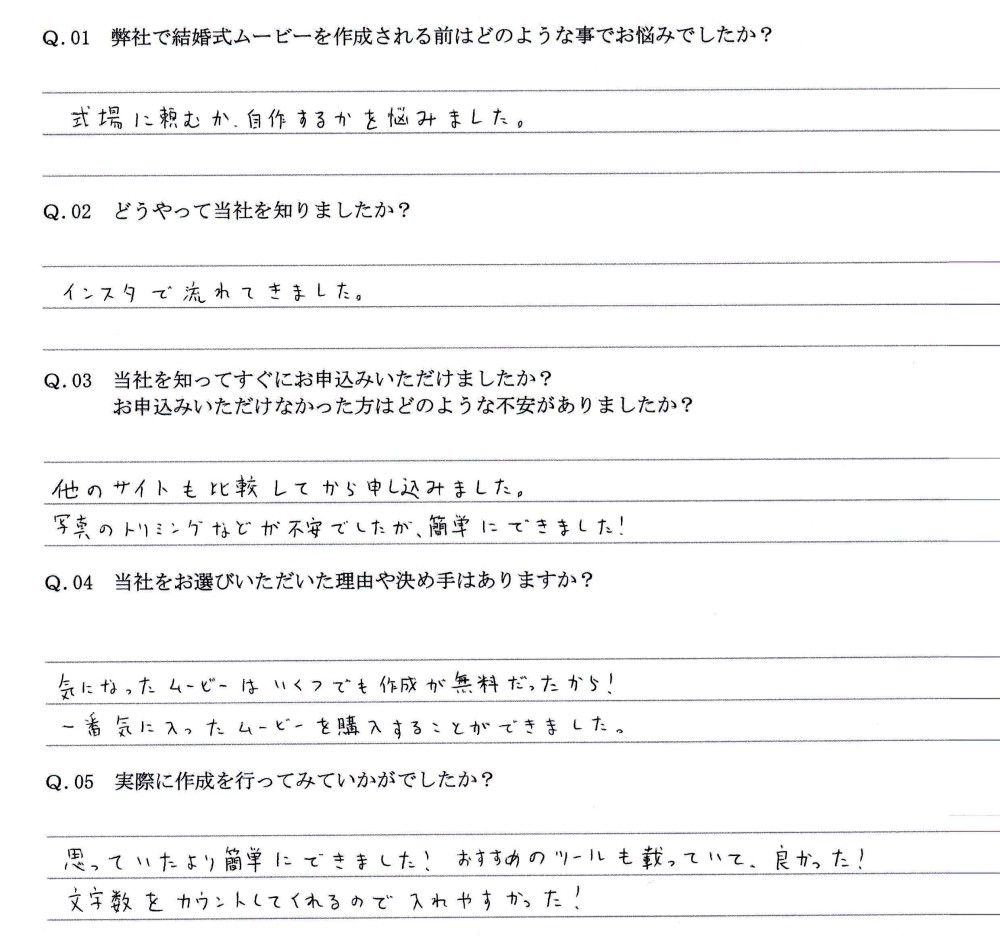 Q.01 弊社で結婚式ムービーを作成される前はどのような事でお悩みでしたか？
式場に頼むか、自作するかを悩みました。
Q.02 どうやって当社を知りましたか？
インスタで流れてきました。
Q.03 当社を知ってすぐにお申込みいただけましたか？
お申込みいただけなかった方はどのような不安がありましたか？
他のサイトも比較してから申し込みました。
写真のトリミングなどが不安でしたが、簡単にできました！
Q.04 当社をお選びいただいた理由や決め手はありますか？
気になったムービーはいくつでも作成が無料だったから！
一番気に入ったムービーを購入することができました。
Q.05 実際に作成を行ってみていかがでしたか？
思っていたより簡単にできました！ おすすめのツールも載っていて、良かった！
文字数をカウントしてくれるので入れやすかった！